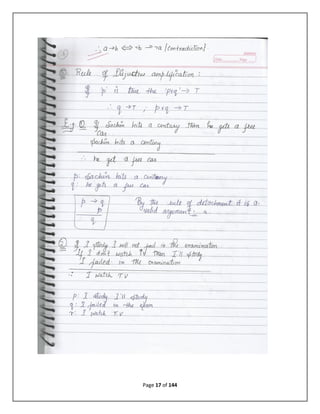 ∴ a→b ⇔ ~b → ~a [Contradiction]
Rule of Disjunctive amplification :
If p is true the 'p∨q' → T
∴ q → T , p∨q → T
Eg ① If Sachin hits a century then he gets a free
car
Sachin hits a century
∴ he get a free car
p: Sachin hits a century
q: he gets a free car
p → q
p
q
By the rule of detachment it is a
valid argument
② If I study I will not fail in the examination
If I don't watch TV then I'll study
I failed in the examination
∴ I watch T.V
p: I study I'll study
q: I failed in the exam
r: I watch T.V
Page 17 of 144